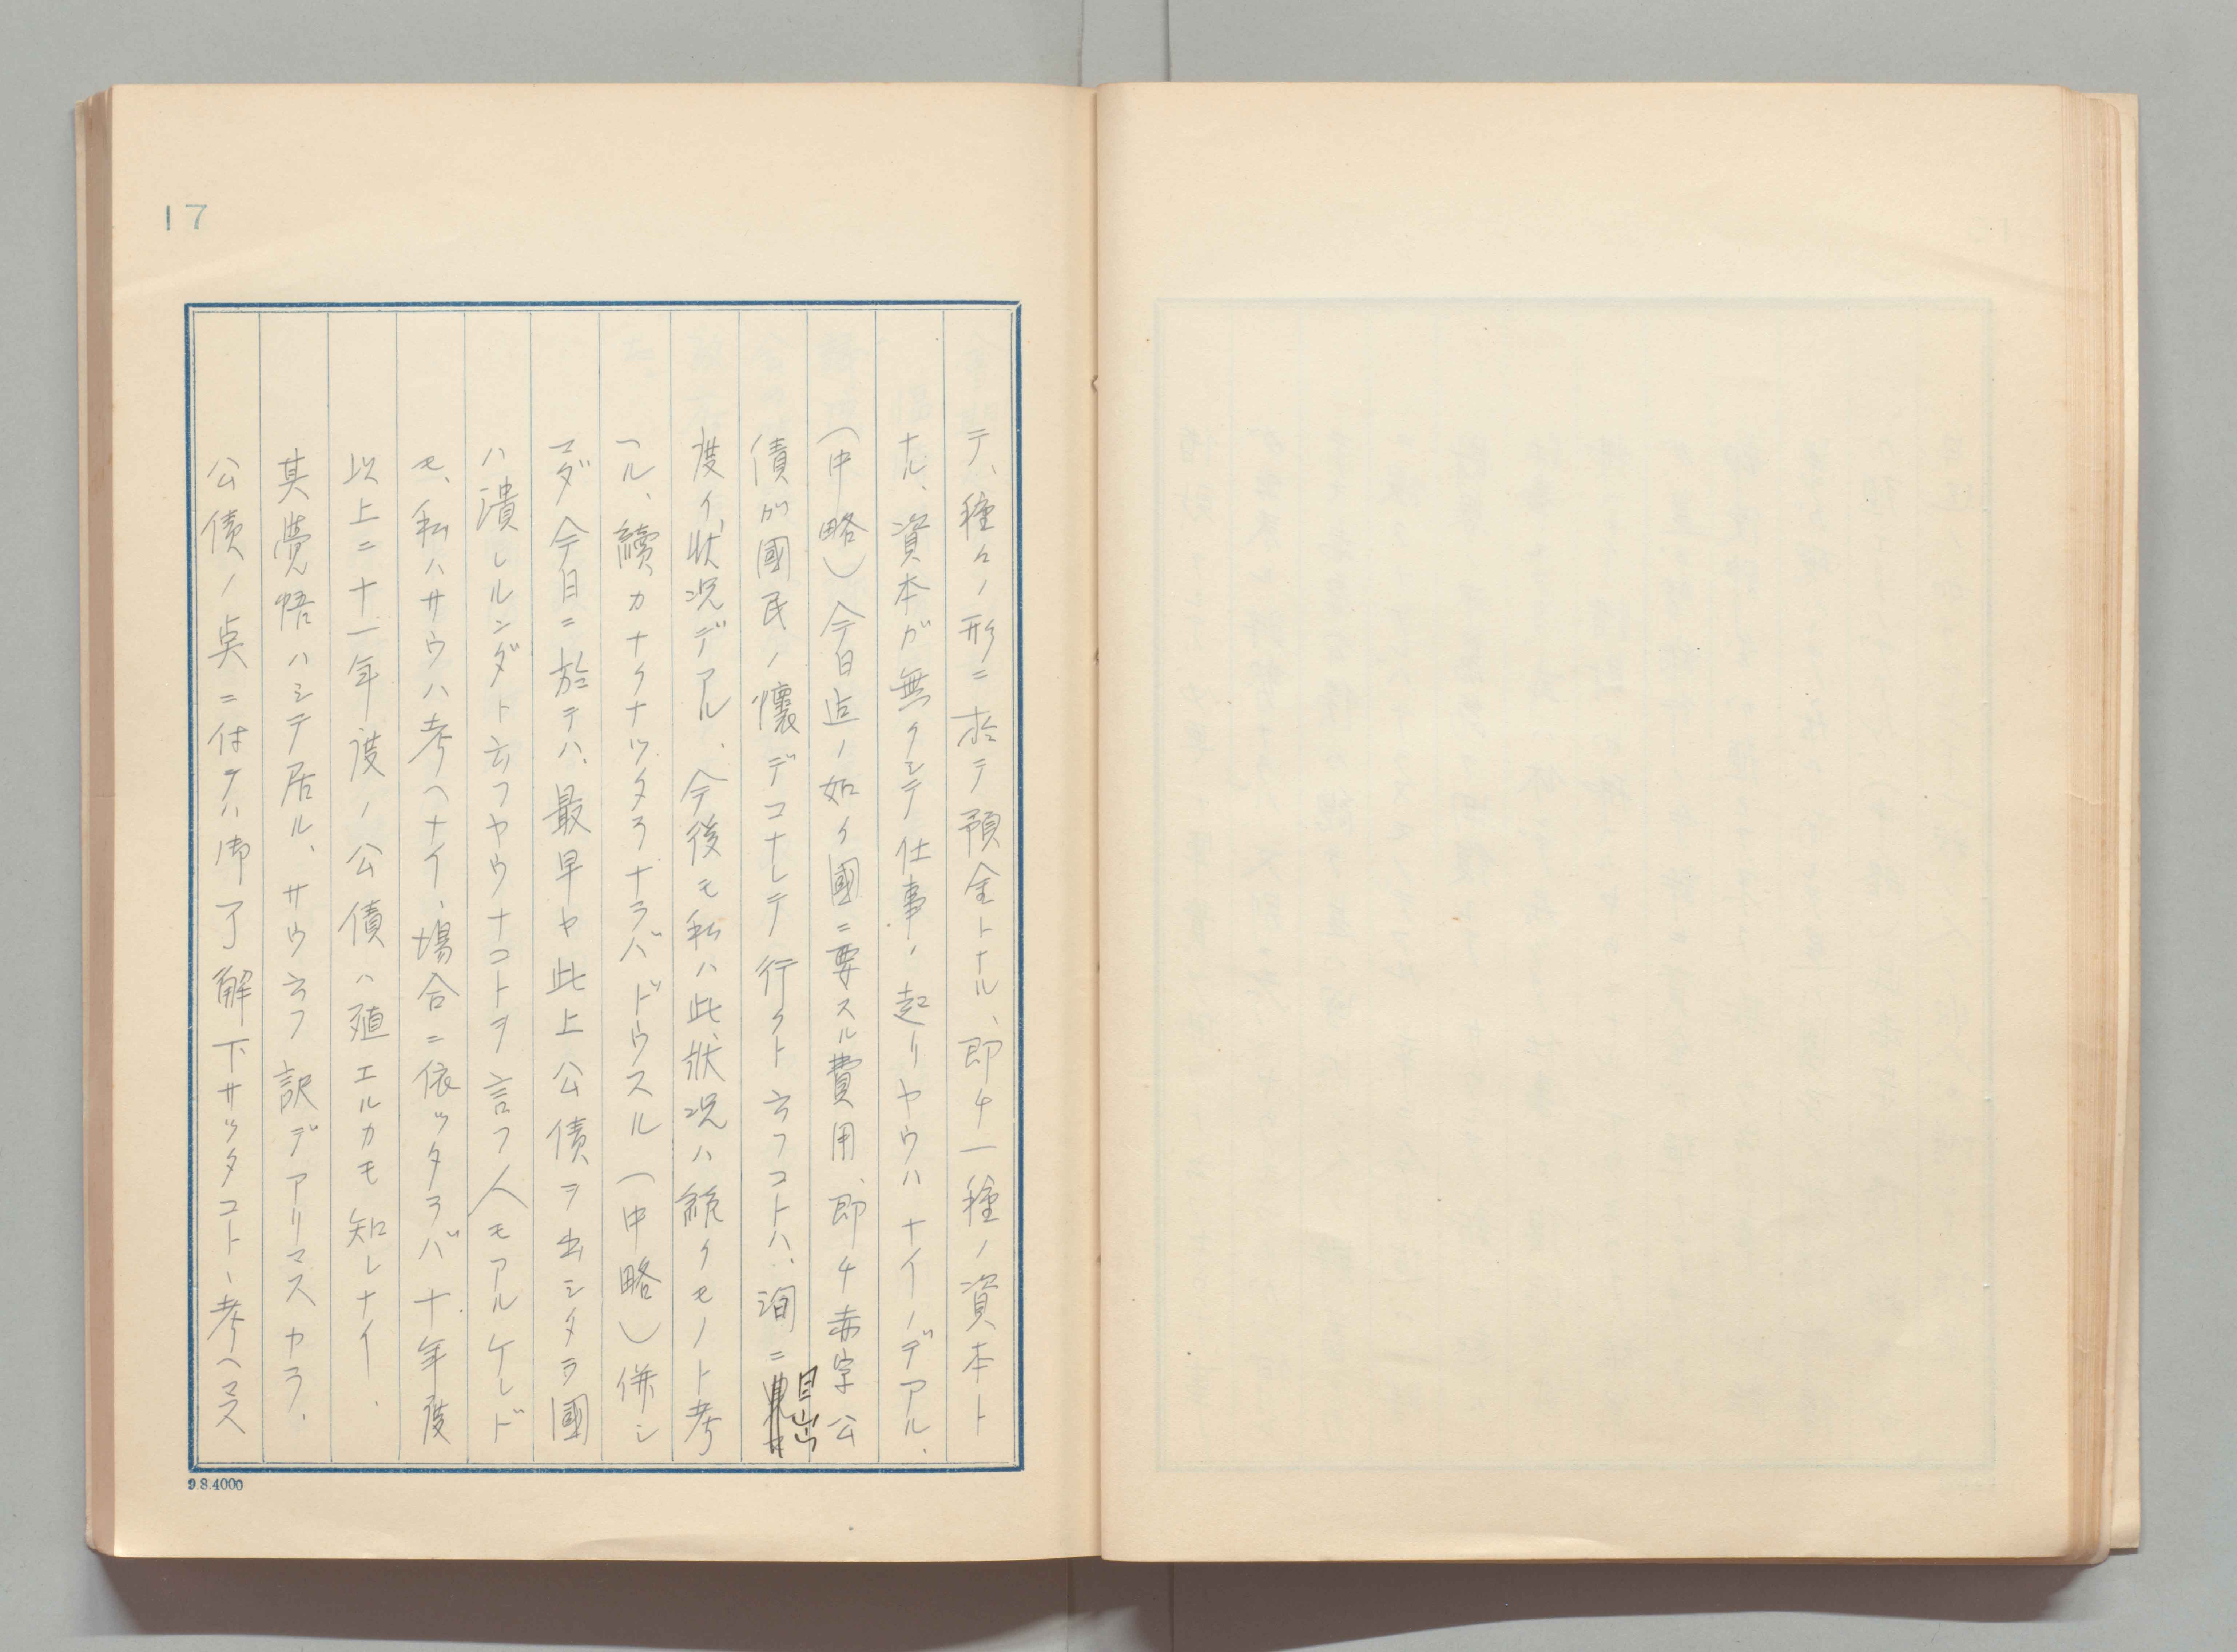 17
テ、種々ノ形ニ於テ預金トナル、即チ一種ノ資本ト
ナル、資本ガ無クシテ仕事ノ起リヤウハナイノデアル、
(中略)今日迄ノ如ク國ニ要スル費用、即チ赤字公
債ガ國民ノ懐デコナレテ行クト云フコトハ、洵ニ目出
度イ狀況デアル、今後モ私ハ此狀況ハ続クモノト考
ヘル、續カナクナツタラナラバドウスル(中略)併シ
マダ今日ニ於テハ、最早ヤ此上公債ヲ出シタラ國
ハ潰レルンダト云フヤウナコトヲ言フ人モアルケレド
モ、私ハサウハ考ヘナイ、場合ニ依ッタラバ十年度
以上ニ十一年度ノ公債ハ殖エルカモ知レナイ、
其覺悟ハシテ居ル、サウ云フ訳デアリマスカラ、
公債ノ点ニ付テハ御了解下サッタコト、考ヘマス
9.8.4000